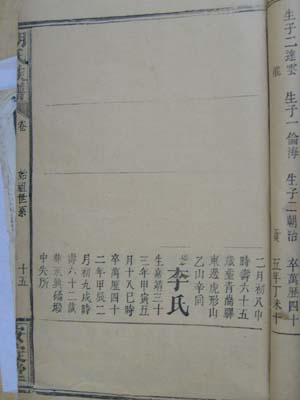 生子二達雲
生子一倫海
生子二朝治
卒萬歷四十
五年丁未十
二月初八申
時壽六十五
歲塟青蕎驛
東邊虎形山
乙山辛向
李氏
生嘉靖三十
三年甲寅五
月十八巳時
卒萬歷四十
二年甲辰二
月初九戌時
壽六十二歲
中失所
氏族譜
卷
始祖世系
十五